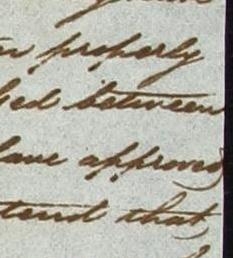 properly
between
have approved
tend that,